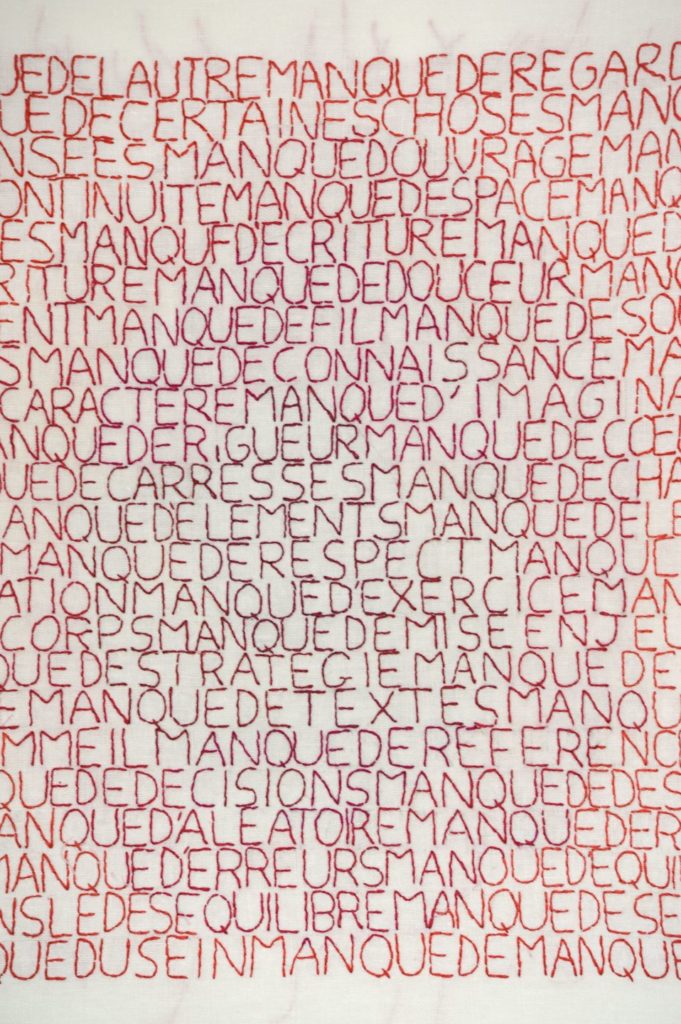 UEDELAUTREMANQUEDEREGARD
UEDECERTAINESCHOSESMANQ
NSEESMANQUEDOUVRAGEMAN
ONTINUITEMANQUEDESPACEMANQ
ESMANQUED'ECRITUREMANQUED
RITUREMANQUEDEDOUCEURMANQ
ENTMANQUEDEFILMANQUEDESO
SMANQUEDECONNAISSANCEMA
CARACTEREMANQUED'IMAGINA
ANQUEDERIGUEURMANQUEDECOE
UEDECARRESSESMANQUEDECHA
ANQUEDELEMENTSMANQUEDELE
MANQUEDERESPECTMANQUE
ATIONMANQUED'EXERCICEMAN
CORPSMANQUEDEMISEENJEU
QUEDESTRATEGIEMANQUEDE
EMANQUEDETEXTESMANQU
MMEILMANQUEDEREFERENC
QUEDEDECISIONSMANQUEDEDES
ANQUED'ALEATOIREMANQUEDER
MANQUED'ERREURSMANQUEDEQUI
NSLEDESEQUILIBREMANQUEDESE
QUEDUSEINMANQUEDEMANQUE